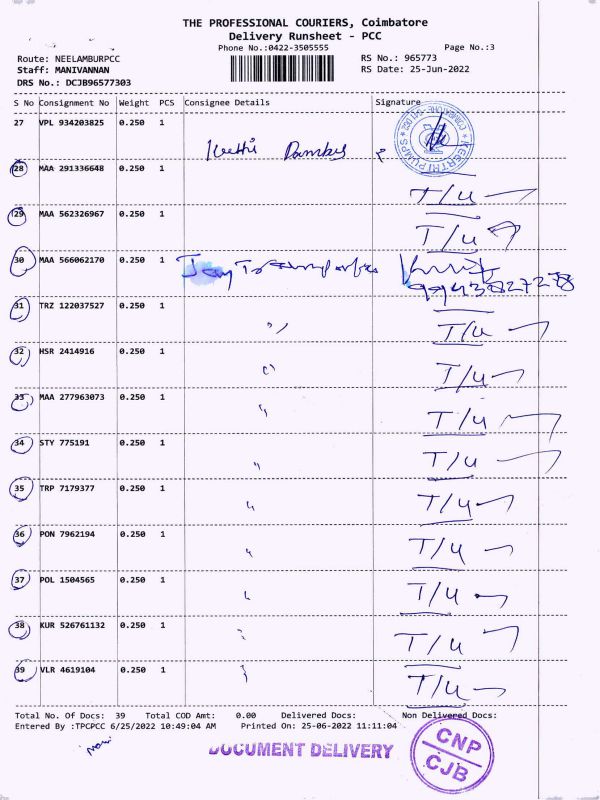 THE PROFESSIONAL COURIERS, Coimbatore
Delivery Runsheet - PCC
Phone No.:0422-3505555
Page No.:3
Route: NEELAMBURPCC
RS No.: 965773
Staff: MANIVANNAN
RS Date: 25-Jun-2022
DRS No.: DCJB96577303
S No Consignment No Weight PCS Consignee Details Signature
27 VPL 934203825 0.250 1
KEERTHI PUMPS
28 MAA 291336648 0.250 1
T/u
29 MAA 562326967 0.250 1
T/u
30 MAA 566062170 0.250 1
31 TRZ 122037527 0.250 1 " T/u
32 HSR 2414916 0.250 1 " T/u
33 MAA 277963073 0.250 1 " T/u
34 STY 775191 0.250 1 " T/u
35 TRP 7179377 0.250 1 " T/u
36 PON 7962194 0.250 1 " T/u
37 POL 1504565 0.250 1 " T/u
38 KUR 526761132 0.250 1 " T/u
39 VLR 4619104 0.250 1 " T/u
Total No. Of Docs: 39 Total COD Amt: 0.00 Delivered Docs: Non Delivered Docs:
Entered By :TPCPCC 6/25/2022 10:49:04 AM Printed On: 25-06-2022 11:11:04
DOCUMENT DELIVERY
CNP
CJB